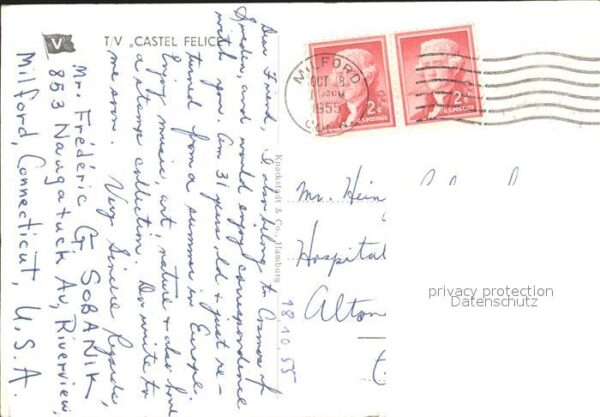 T/V „CASTEL FELICE"
Dear Friend, I also belong to Cosmos of
Sweden, and would enjoy correspondence
with you. Am 31 years old & just re-
turned from a summer in Europe.
Enjoy music, art, nature & also have
a stamp collection. Do write to
me soon. Very Sincere Regards,
Mr. Frédéric G SOBANIK
853 Naugatuck Av, Riverview,
Milford, Connecticut, U.S.A.
Knackstedt & Co., Hamburg
18.10.55
MILFORD
OCT 18
1955
CONN.
2¢
U.S. POSTAGE
2¢
U.S. POSTAGE
Mr. Hein
Hospital
Alton
privacy protection
Datenschutz